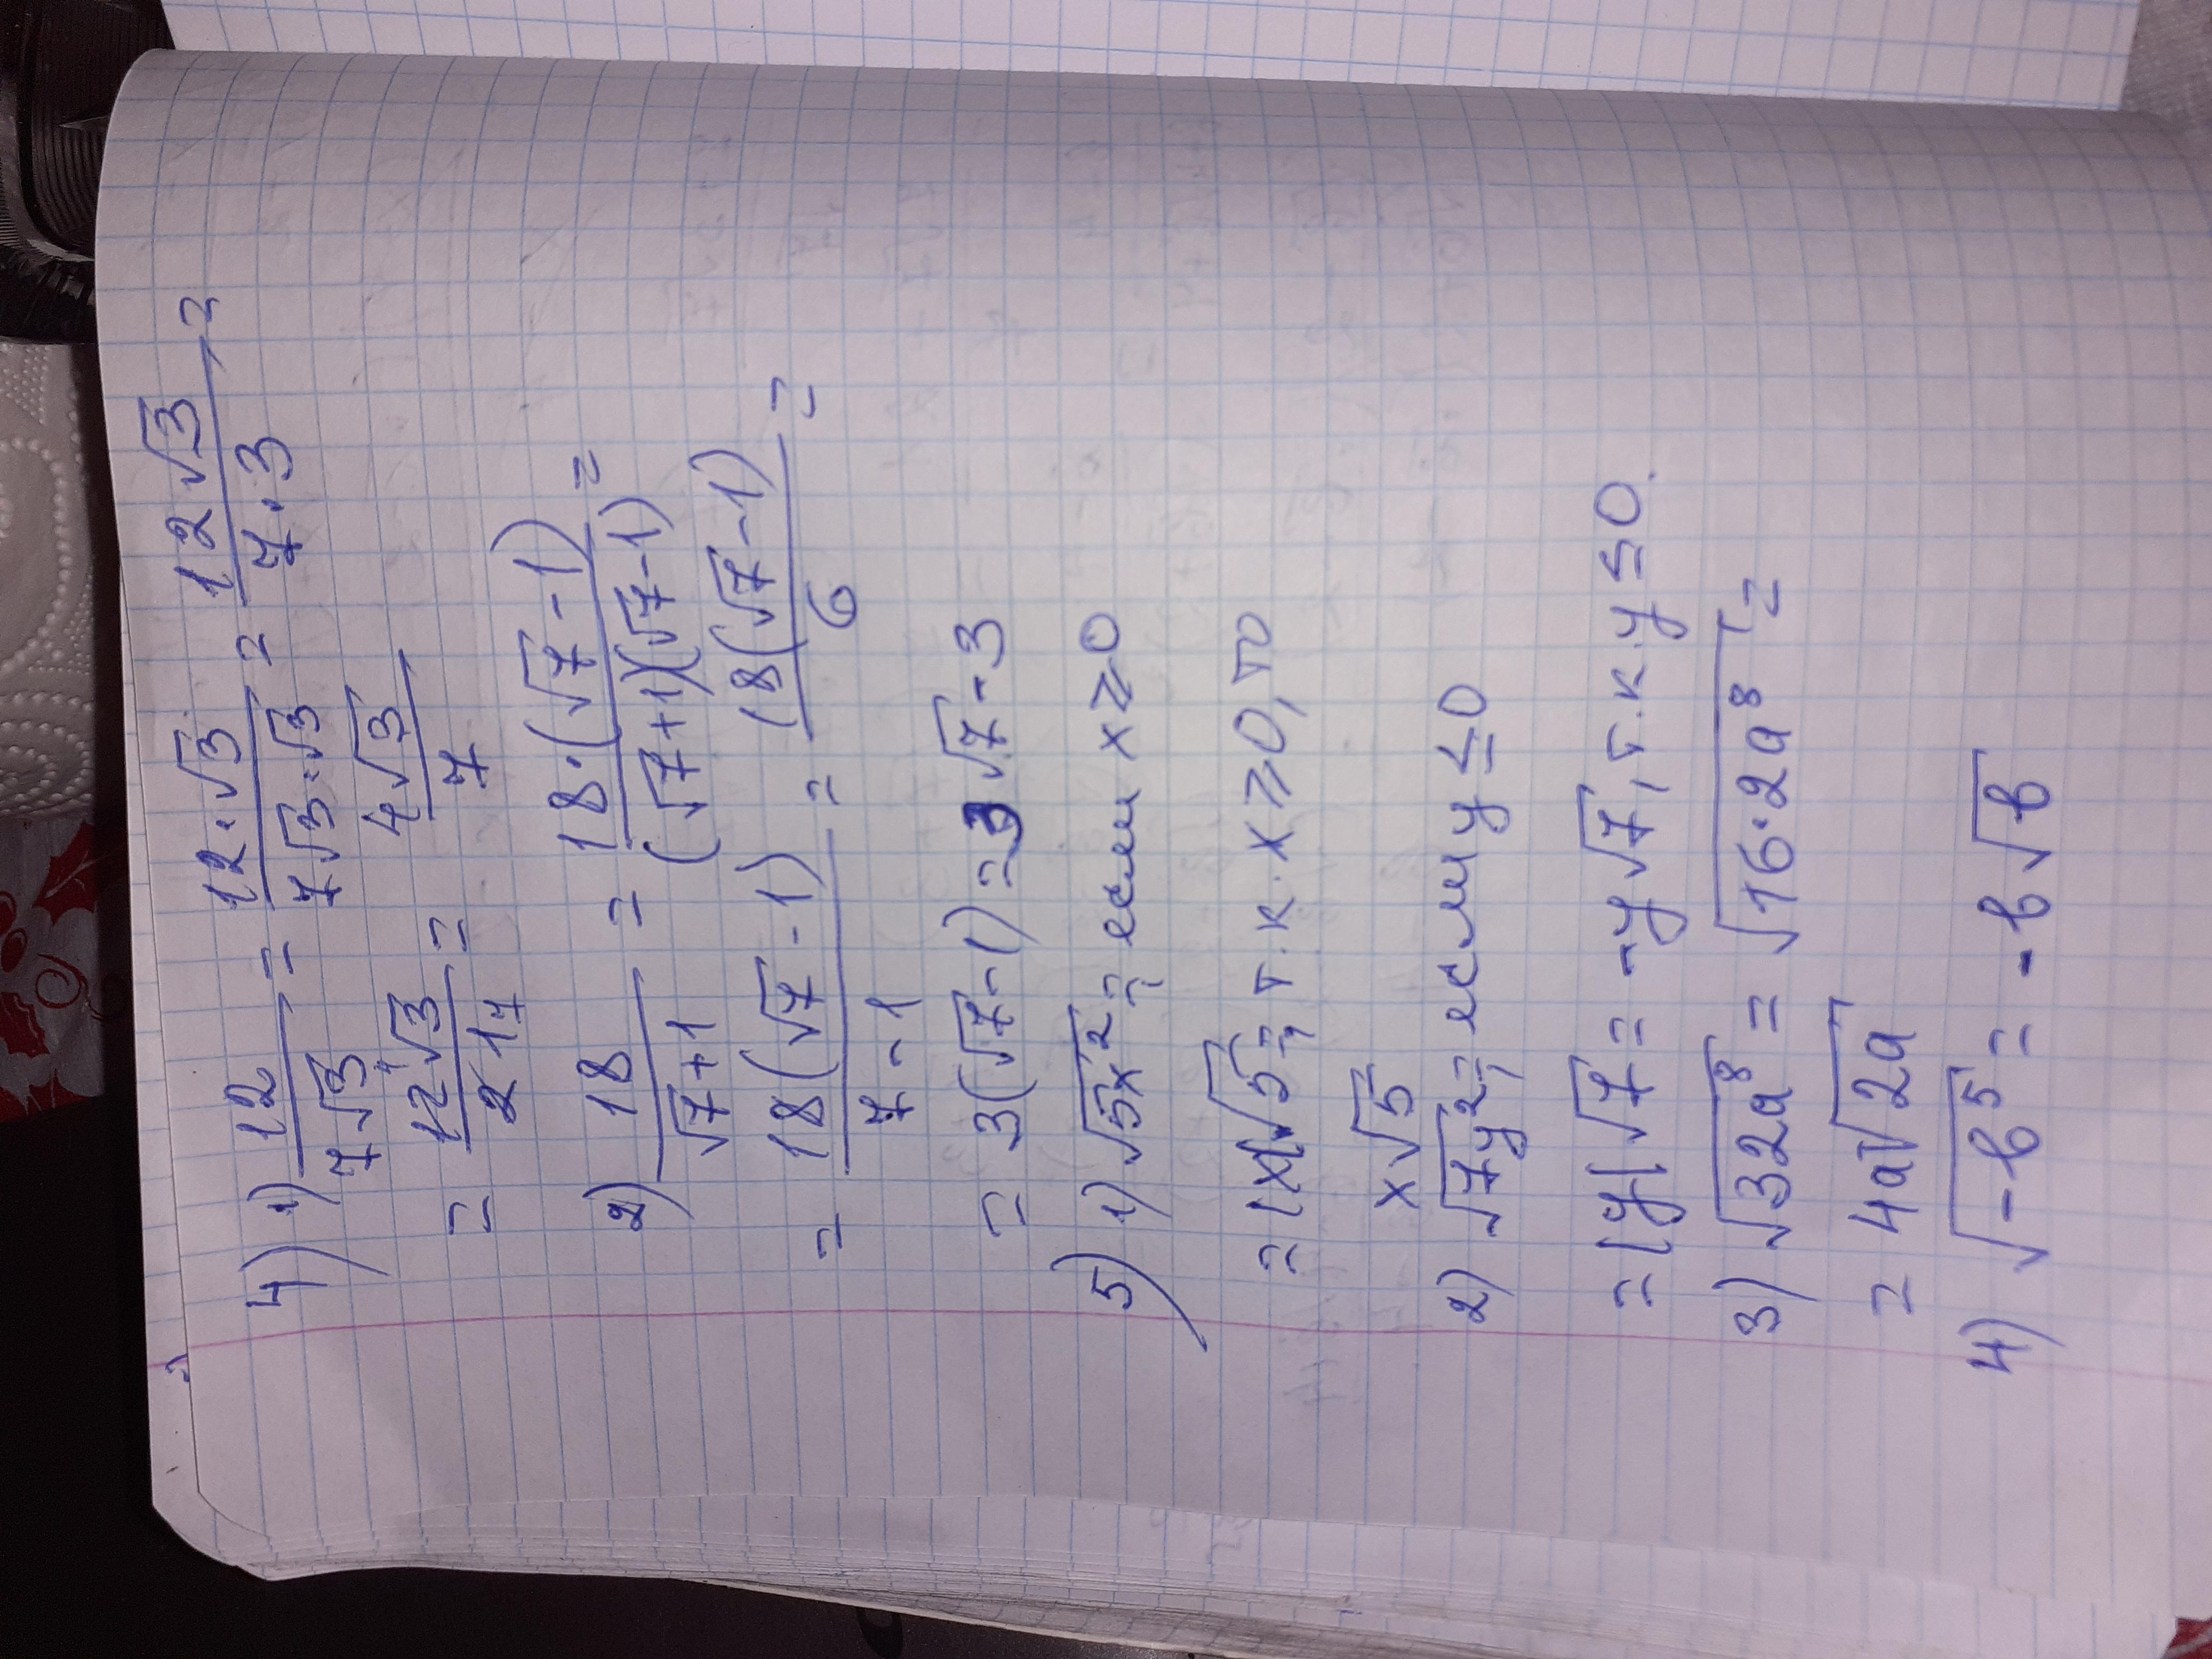 4) 1) 12/(7√3) = (12·√3)/(7√3·√3) = (12√3)/(7·3) =
= (12√3)/(217) = (4√3)/7
2) 18/(√7+1) = (18·(√7-1))/((√7+1)(√7-1)) =
= (18(√7-1))/(7-1) = (18(√7-1))/6 =
= 3(√7-1) = 3√7-3
5) 1) √5x² =, если x⩾0
= |x|√5 =, т.к. x⩾0, то
x√5
2) √7y² =, если y≤0
= |y|√7 = -y√7, т.к. y≤0.
3) √32a⁸ = √16·2a⁸ =
= 4a√2a
4) √-b⁵ = -b√b